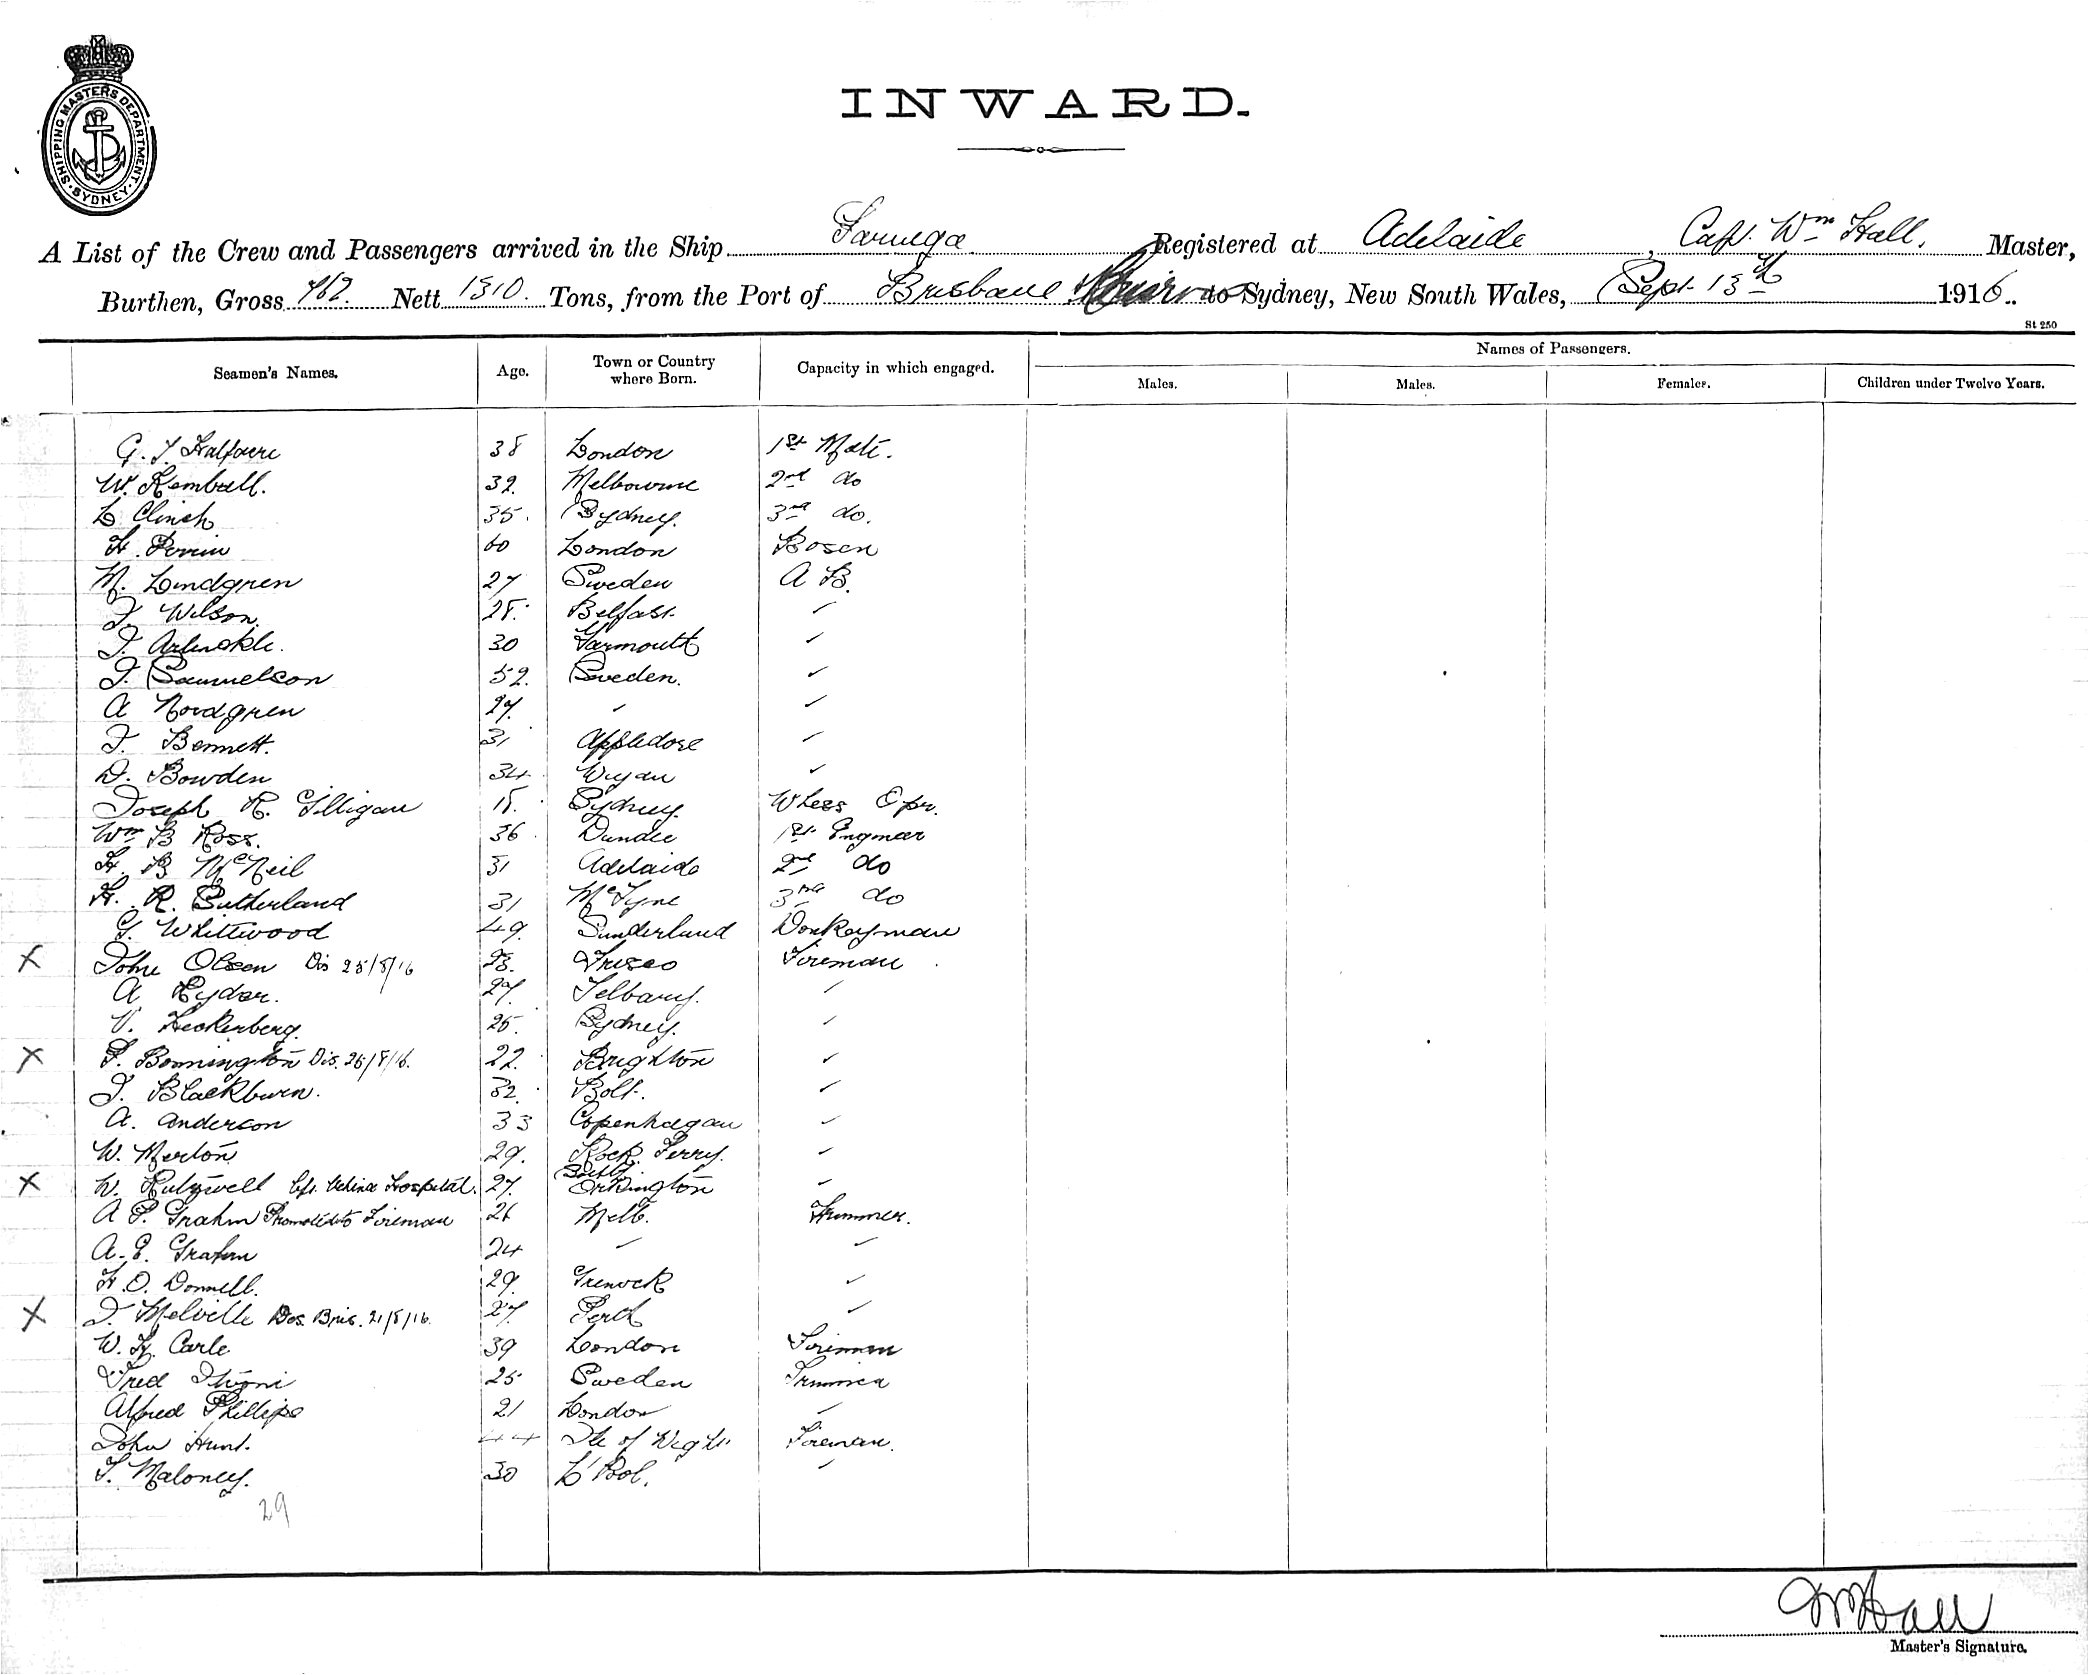 SHIPPING MASTERS DEPARTMENT. SYDNEY
INWARD.
A List of the Crew and Passengers arrived in the Ship Registered at Adelaide, Cap. Wm Hall. Master,
Burthen, Gross Nett 1310. Tons, from the Port of Brisbane to Sydney, New South Wales, Sept 13th 1916.
St 250
Seamen's Names. Age. Town or Country where Born. Capacity in which engaged. Names of Passengers.
Males. Males. Females. Children under Twelve Years.
G. 38 London 1st Mate.
W. Kemball. 32 Melbourne 2nd do
L Clinch 35. Sydney. 3rd do.
H. Perrin 60 London Bosen
M. Lindgren 27 Sweden A B.
J. Wilson. 28. Belfast ✓
J. 30 Yarmouth ✓
J. Samuelson 52. Sweden. ✓
A Nordgren 27. ✓ ✓
J. Bennett. 31 Appledore ✓
D. Bowden 34. Wigan ✓
Joseph R. Gilligan 18. Sydney. Wless Opr.
Wm B Ross. 36. Dundee 1st Engineer
H. B McNeil 31 Adelaide 2nd do
H. R. Sutherland 31 3rd do
G. Whittwood 49. Sunderland Donkeyman
X John Olsen Dis 25/8/16 23. Frisco Fireman.
A Rydar. 27. ✓
V. Heckenberg. 25. Sydney. ✓
X F. Bonnington Dis. 25/8/16. 22. Brighton ✓
J. Blackburn. 32. Bolt. ✓
A. Anderson 33 Copenhagan ✓
W. Merton 29. Rock Ferry. ✓
X W. Hospital. 27. ✓
A P. Grahm Promoted to Fireman 26 Melb. Trimmer.
A. E. Grahm 24 ✓ ✓
H. O. Donnell. 29. Grenock ✓
X J. Melville Des. Bris. 21/8/16. 27 Perth ✓
W. H. Carle 39 London Fireman
Fred 25 Sweden Trimmer
Alfred Phillips 21 London ✓
John Hunt. 44 Isle of Wight Fireman.
T. Maloney. 30 L'Pool. ✓
29
WM Hall
Master's Signature.